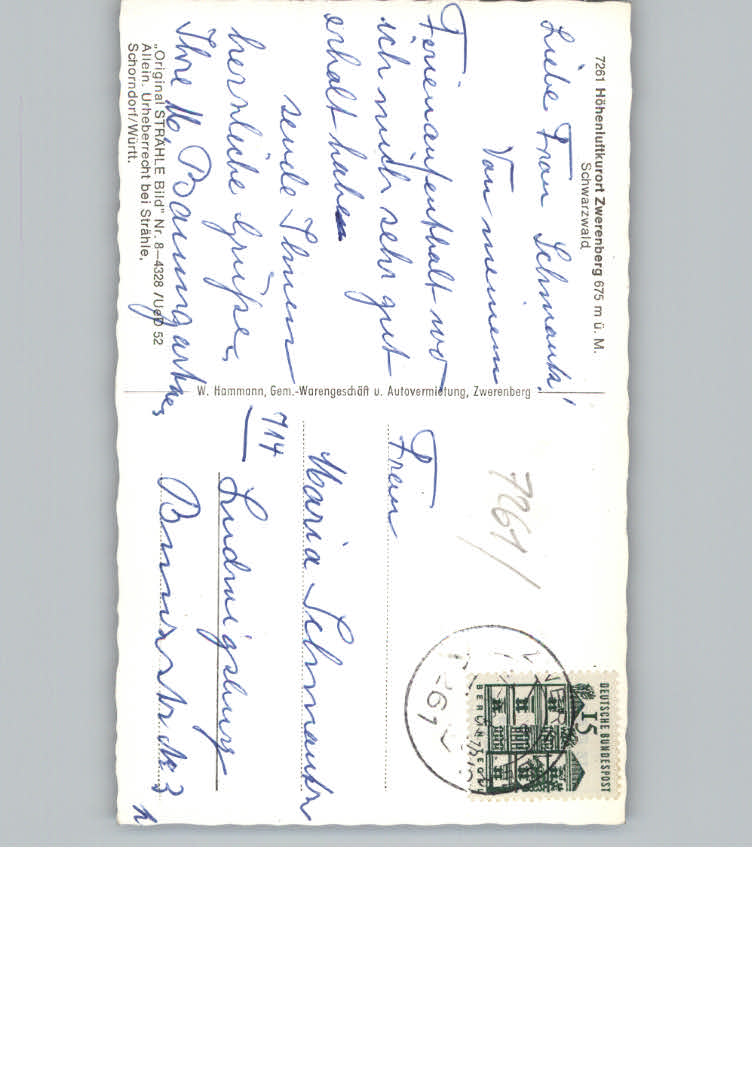 7261 Höhenluftkurort Zwerenberg 675 m ü. M.
Schwarzwald
Liebe Frau Schmautz!
Von meinem
Ferienaufenthalt wo
ich mich sehr gut
erhalt haben
sende Ihnen
herzliche Grüße,
Ihre M. Baumgartner
„Original STRÄHLE Bild" Nr. 8–4328 /UaD 52
Allein. Urheberrecht bei Strähle,
Schorndorf/Württ.
W. Hammann, Gem.-Warengeschäft u. Autovermietung, Zwerenberg
7261
DEUTSCHE BUNDESPOST
15
BERLIN/TEGEL
7261
Frau
Maria Schmautz
714
Ludwigsburg